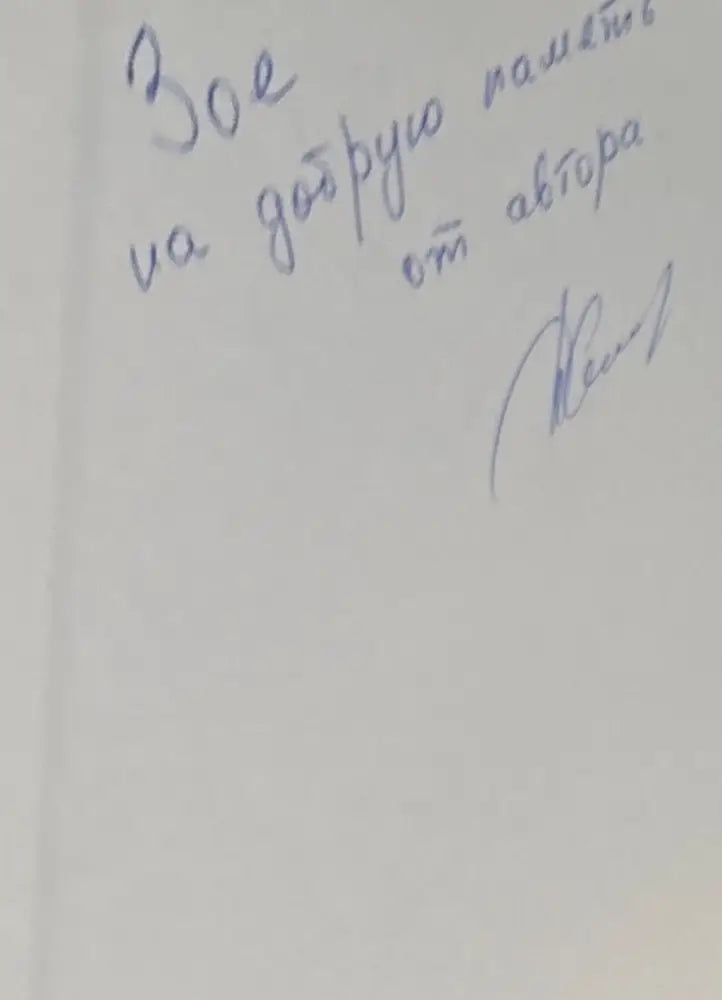 Зое
на добрую память
от автора